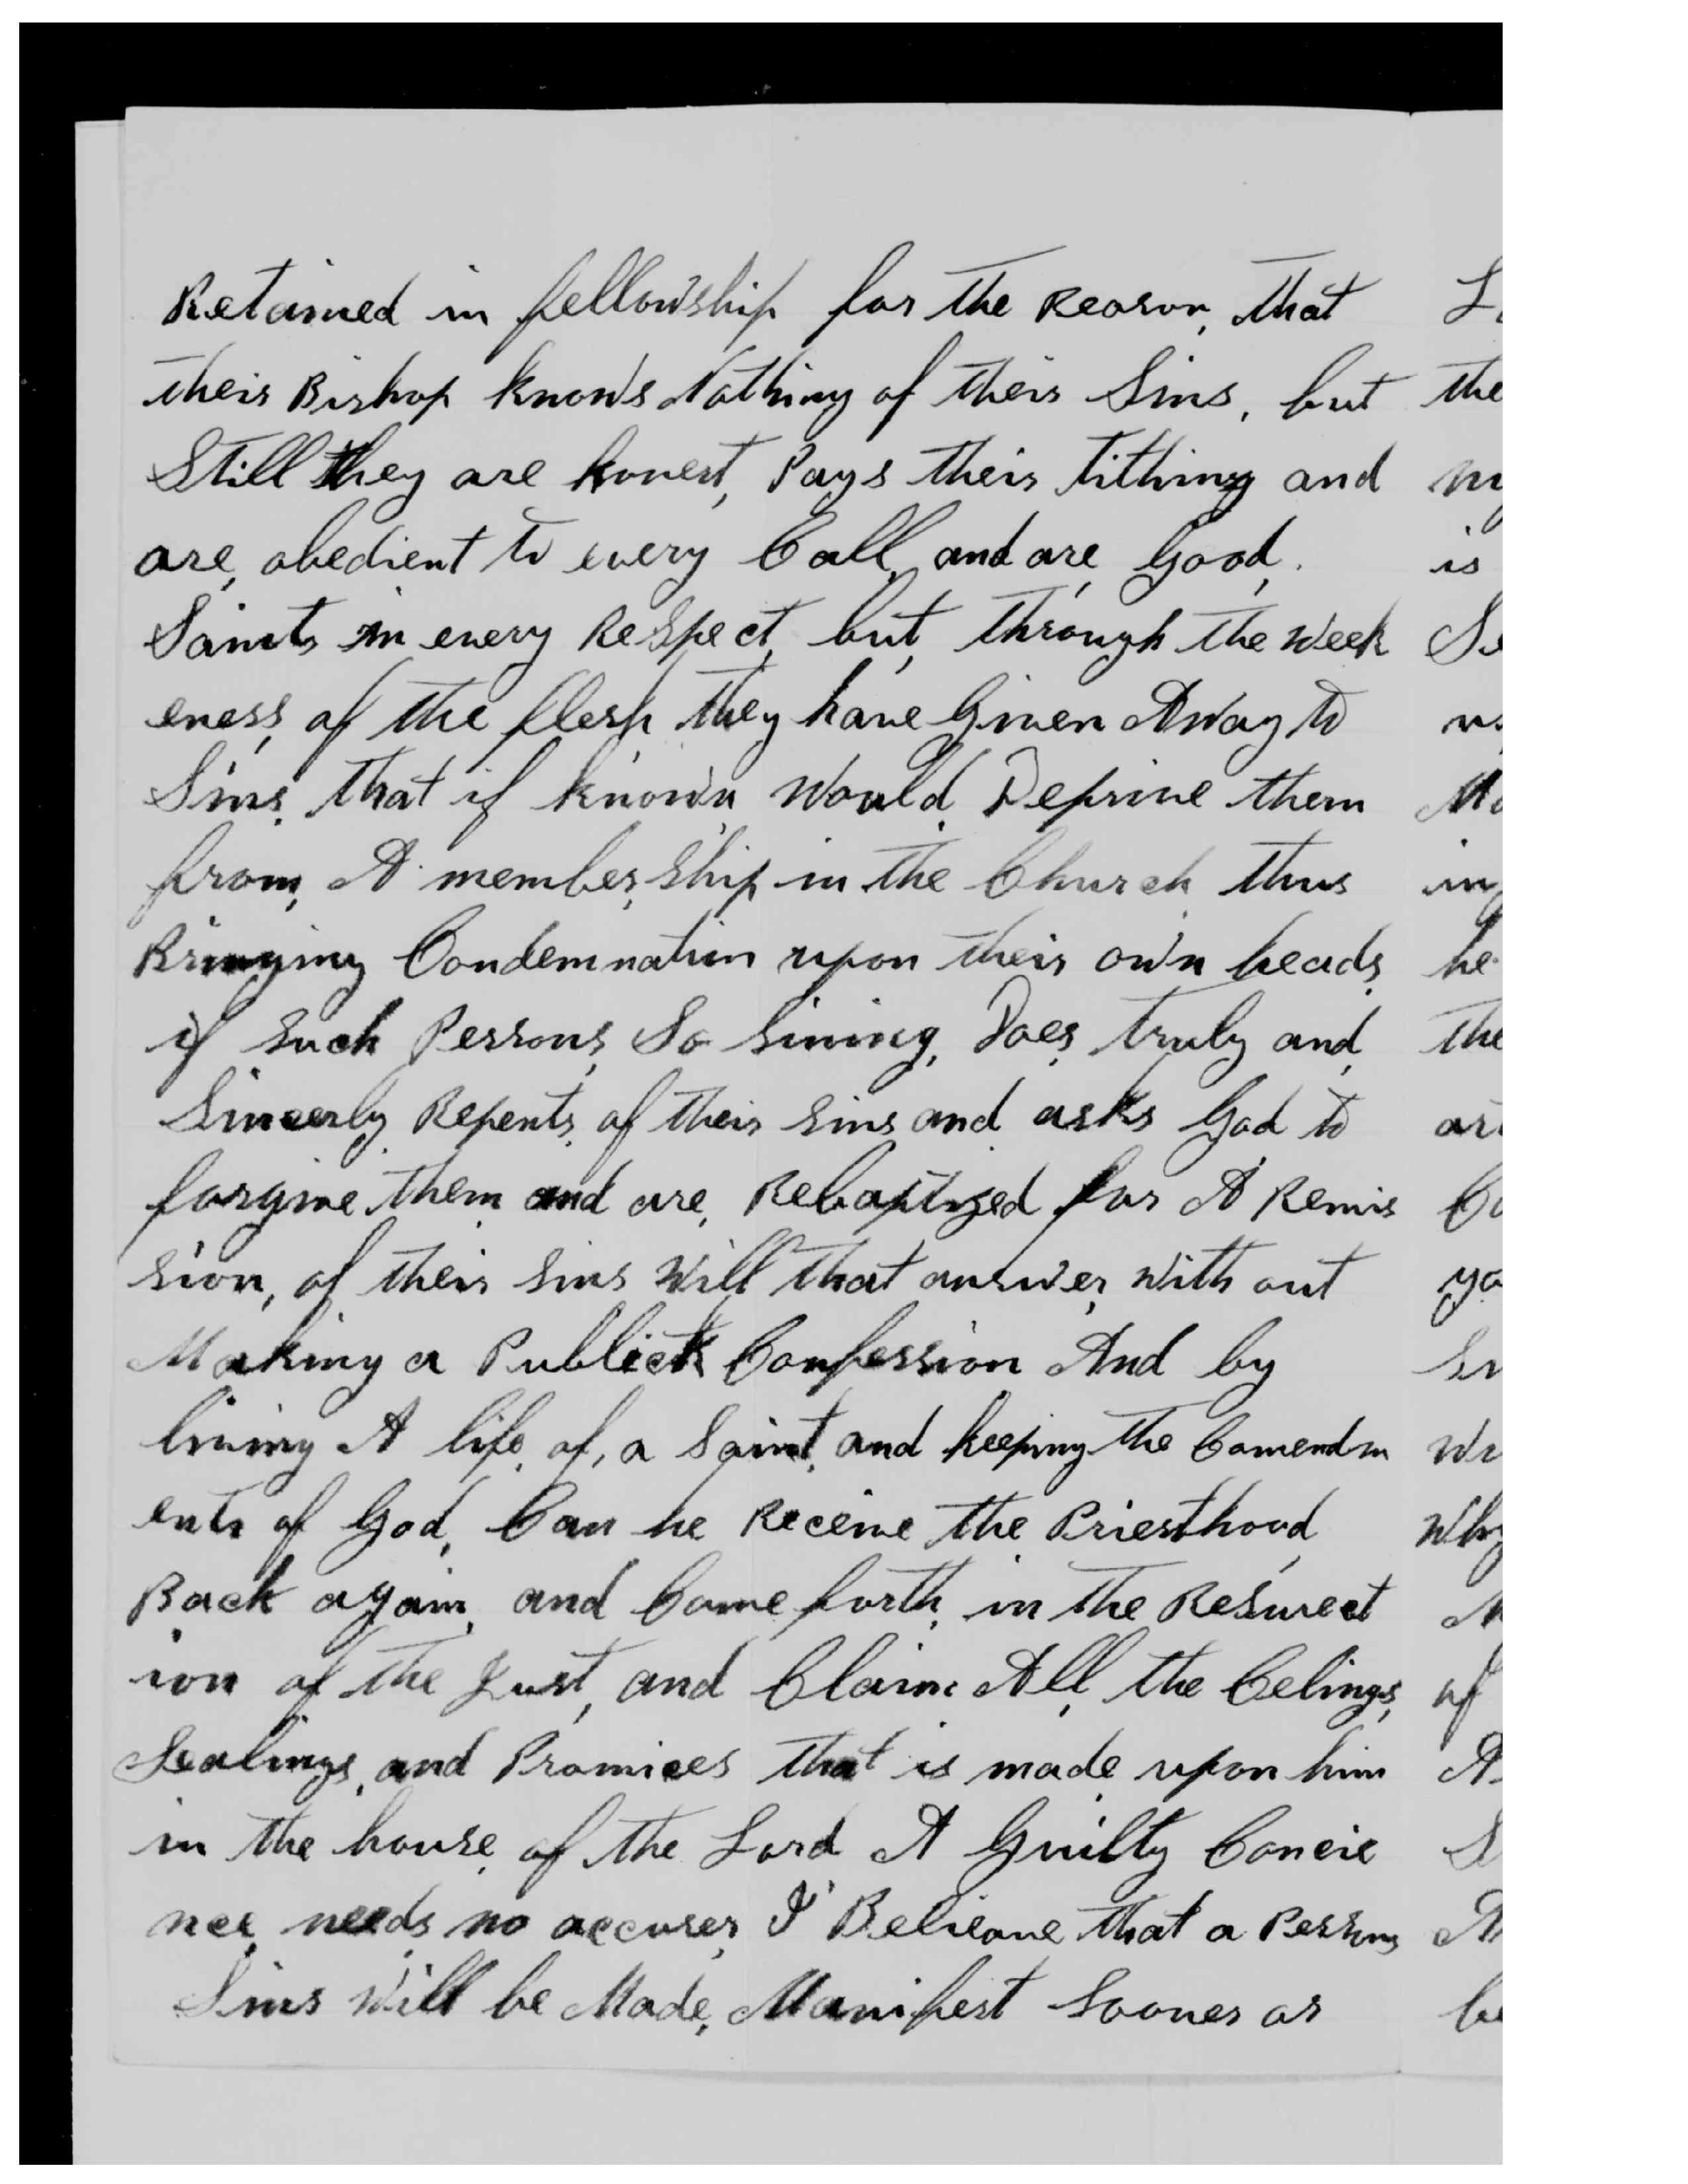 Retained in fellowship for the Reason, that
their Bishop knows Nothing of their Sins, but
Still they are honest, Pays their tithing and
are, obedient to every Call, and are, Good,.
Saints in every Respect, but, through the week
eness, of the flesh they have Given Away to
Sins, that if known, would, Deprive them
from, A member,ship in the Church, thus
Bringing Condemnation upon their own heads,
if such Persons, So sining, Does, truly and,
Sincerly, Repents, of their sins and asks God to
forgive them and are, Rebaptized for A Remis
sion, of their sins will that answer, with out
Making a Publick Confession And by
living A life, of, a Saint, and keeping the Comendm
ents of God, Can he Receive the Priesthood
Back again, and Come forth, in the Resurect
ion of the Just, and Claim All, the Celings,
Sealings, and Promices that is made, upon him
in the house, of the Lord A Guilty Concie
nce, needs no accuser, I Belieave that a Persons
Sins will be Made, Manifest Sooner or
the
is
in
he
the
of
be